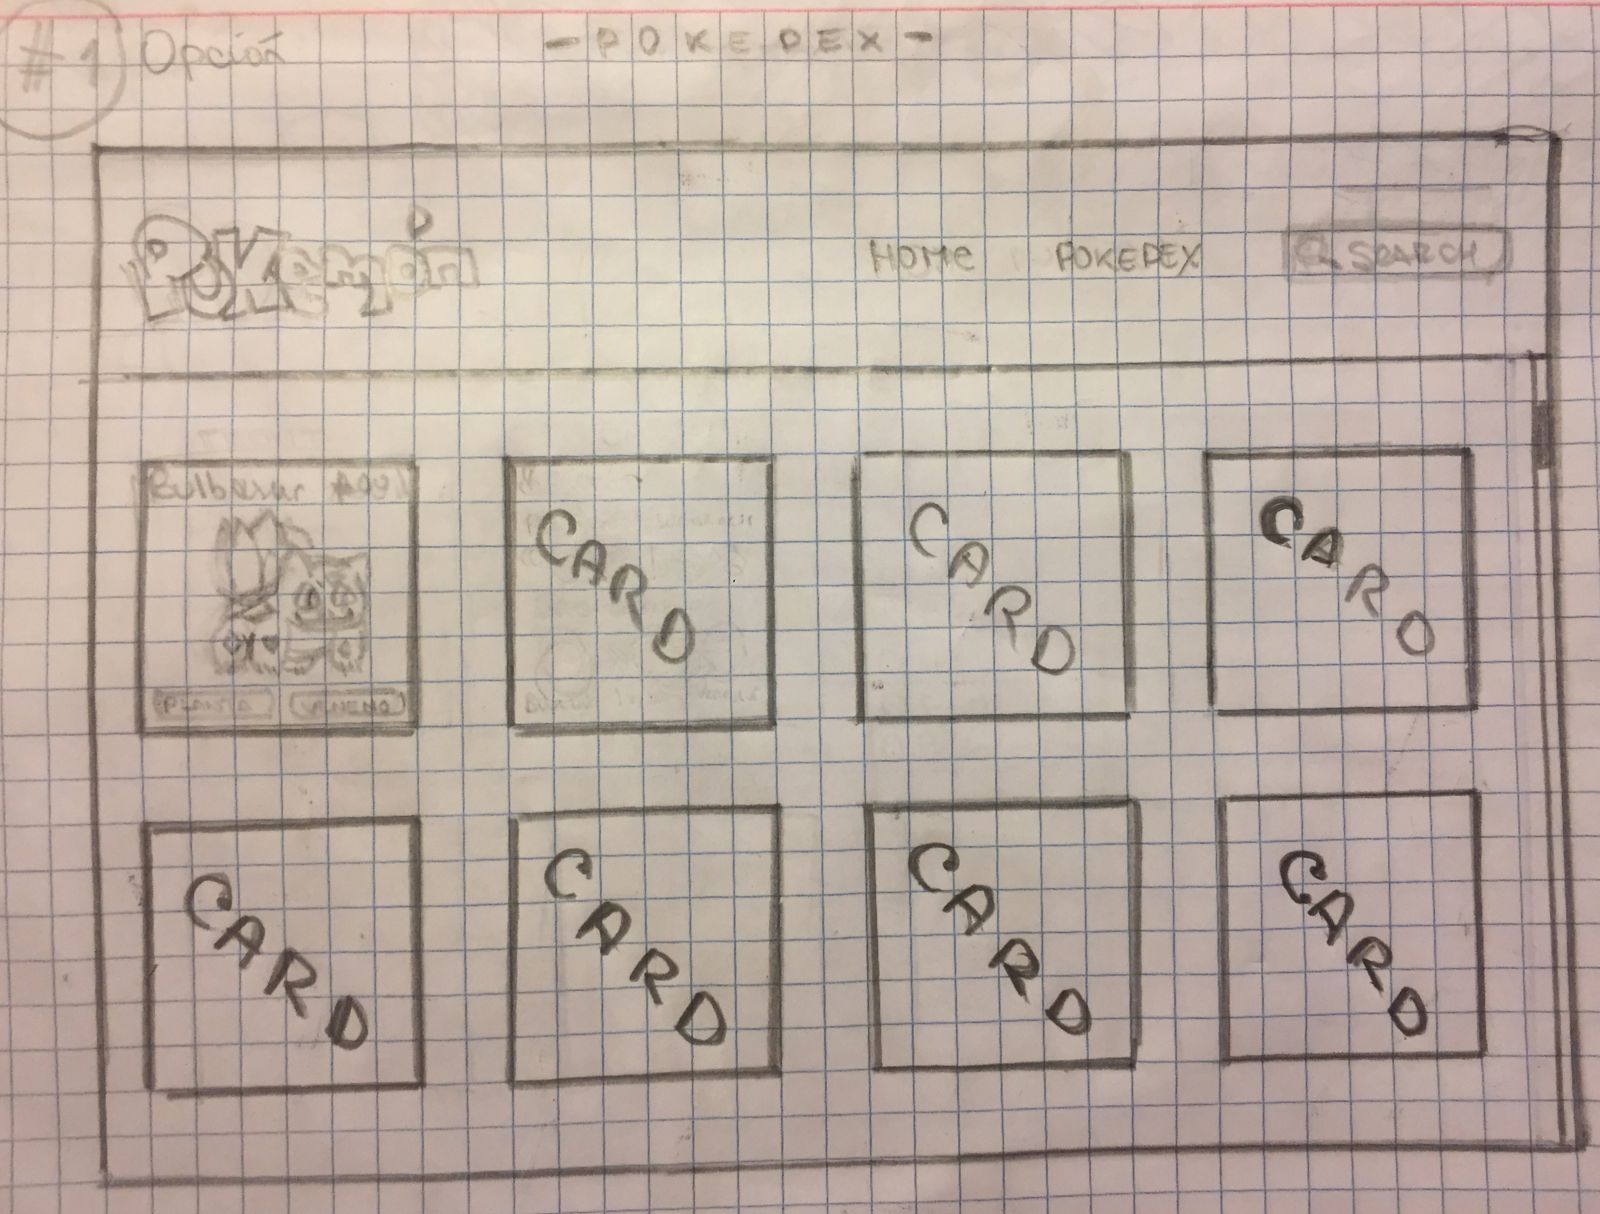 #1 Opción -POKEDEX-
Pokemón HOME POKEDEX SEARCH
Bulbasaur
PLANTA VENENO
CARD CARD CARD
CARD CARD CARD CARD